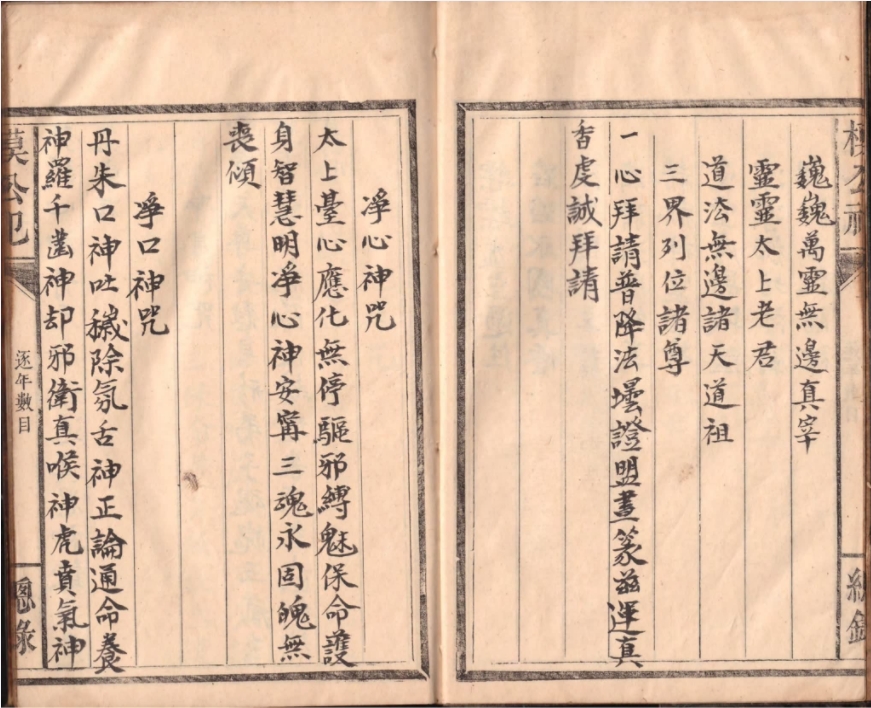 巍巍萬靈無邊真宰
靈靈太上老君
道法無邊諸天道祖
三界列位諸尊
一心拜請普降法壇證盟畫篆茲運真
香虔誠拜請
淨心神咒
太上臺心應化無停驅邪縛魅保命護
身智慧明淨心神安寗三魂永固魄無
喪傾
淨口神咒
丹朱口神吐穢除氛舌神正論通命養
神羅千齒神却邪衛真喉神虎賁氣神
公祀
逐年數目
總錄